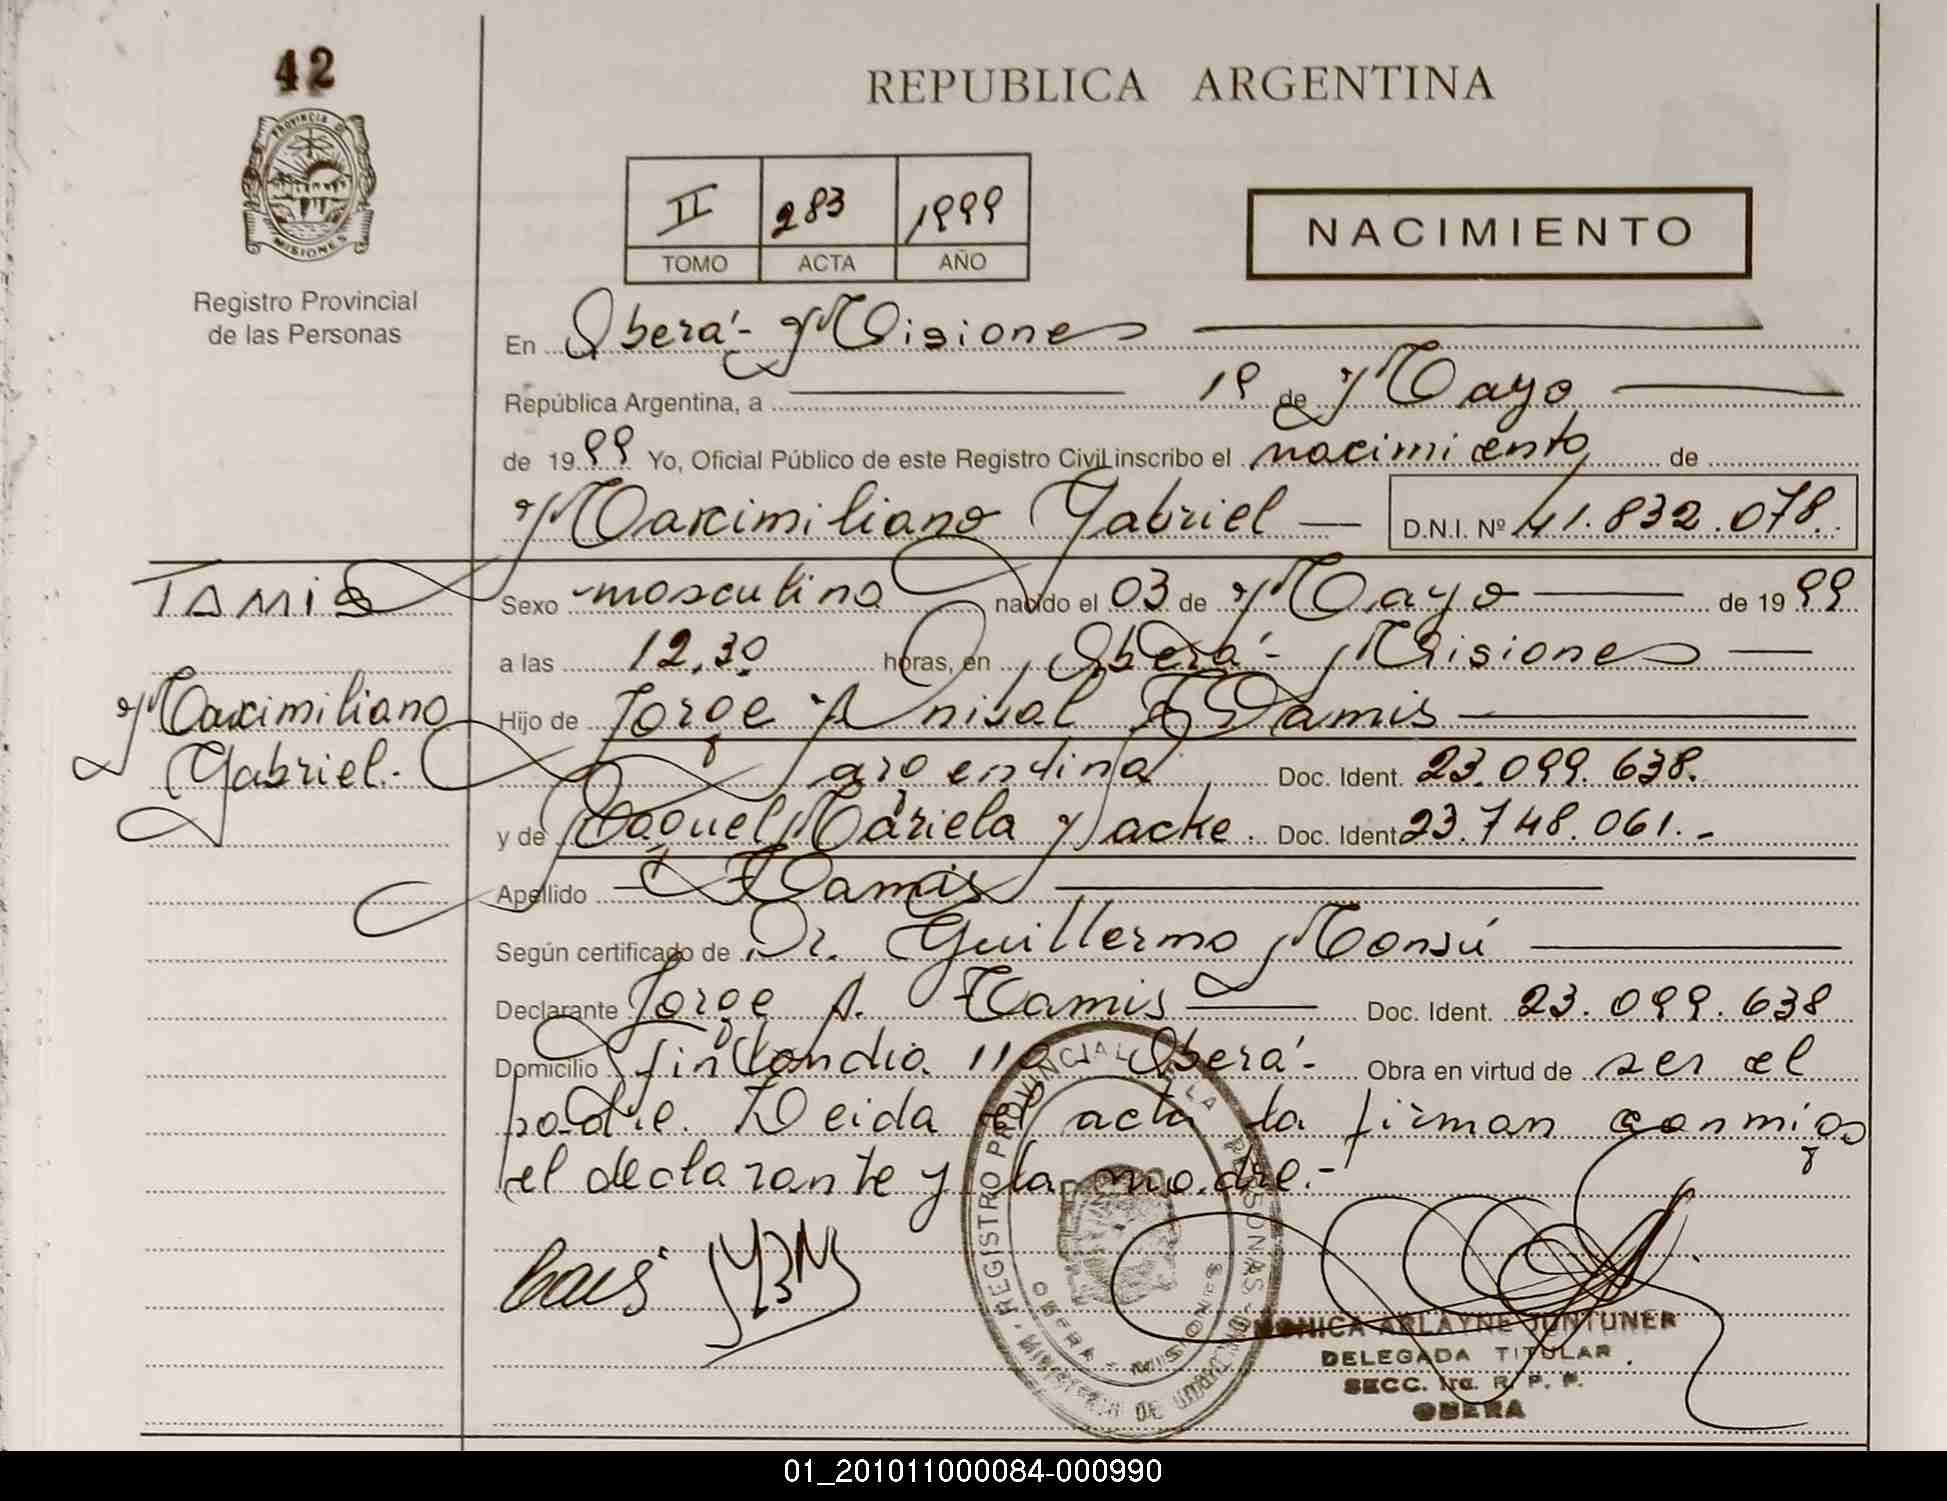 42
REPUBLICA ARGENTINA
PROVINCIA DE
MISIONES
Registro Provincial
de las Personas
II 283 1999
TOMO ACTA AÑO
NACIMIENTO
En Oberá- Misiones
República Argentina, a 19 de Mayo
de 1999 Yo, Oficial Público de este Registro Civil inscribo el nacimiento de
Maximiliano Gabriel D.N.I. Nº 41.832.078.
TAMIS
Maximiliano
Gabriel.-
Sexo masculino nacido el 03 de Mayo de 1999
a las 12,30 horas, en Oberá- Misiones
Hijo de Jorge Anival Tamis
argentina Doc. Ident. 23.099.638.
y de Raquel Mariela Jacke. Doc. Ident 23.748.061.-
Apellido Tamis
Según certificado de Dr. Guillermo Monsú
Declarante Jorge A. Tamis Doc. Ident. 23.099.638
Domicilio Finlandia 110 Oberá- Obra en virtud de ser el
padre. Leida el acta la firman conmigo
el declarante y la madre.-
REGISTRO PROVINCIAL DE LAS PERSONAS
OBERA - MISIONES
MINISTERIO DE
MONICA ARLAYNE JUNTUNER
DELEGADA TITULAR
SECC. 1ra. R. P. P.
OBERA
01_201011000084-000990